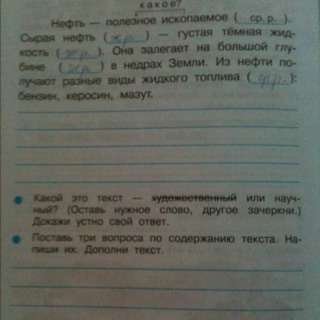 какое?
Нефть — полезное ископаемое ( ср. р. ).
Сырая нефть ( ж.р. ) — густая тёмная жид-
кость ( ж.р. ). Она залегает на большой глу-
бине ( ж.р. ) в недрах Земли. Из нефти по-
лучают разные виды жидкого топлива ( ):
бензин, керосин, мазут.
Какой это текст — художественный или науч-
ный? (Оставь нужное слово, другое зачеркни.)
Докажи устно свой ответ.
Поставь три вопроса по содержанию текста. На-
пиши их. Дополни текст.